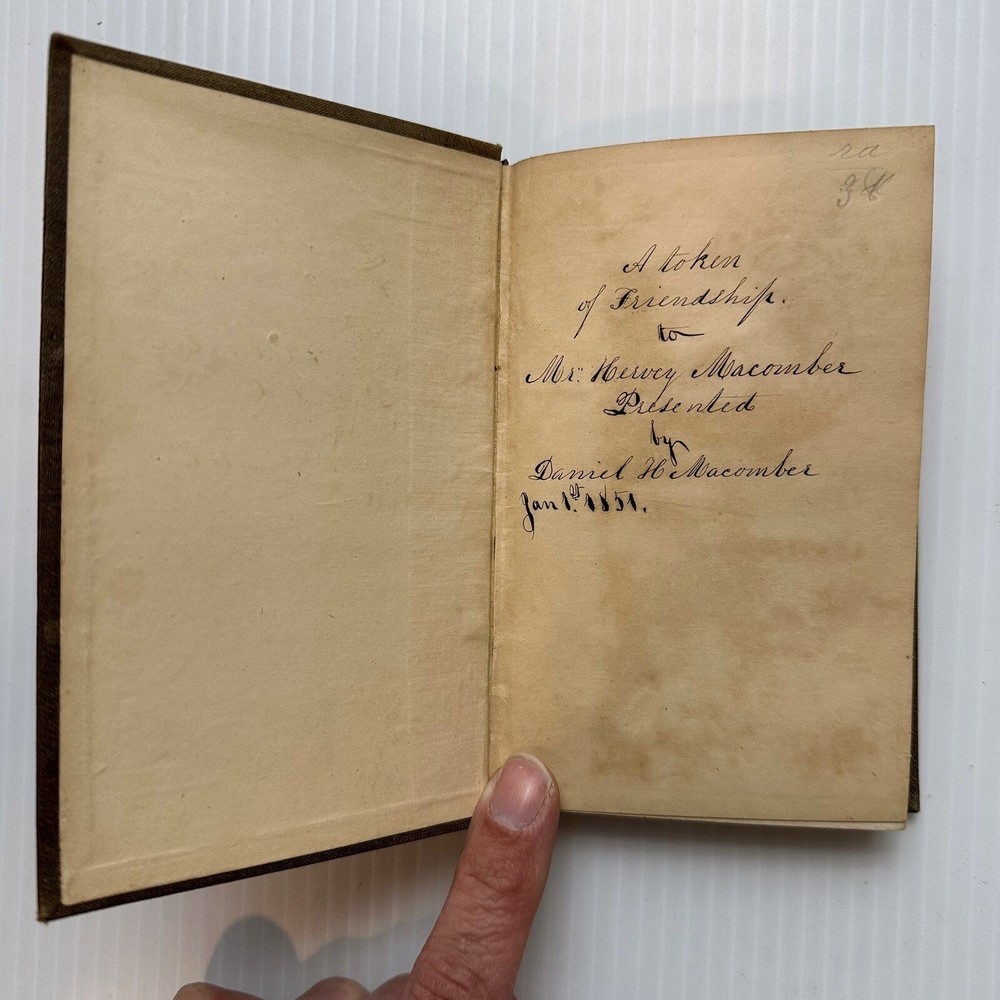 A token
of Friendship.
to
Mr: Hervey Macomber
Presented
by
Daniel H Macomber
Jan 1st. 1851.